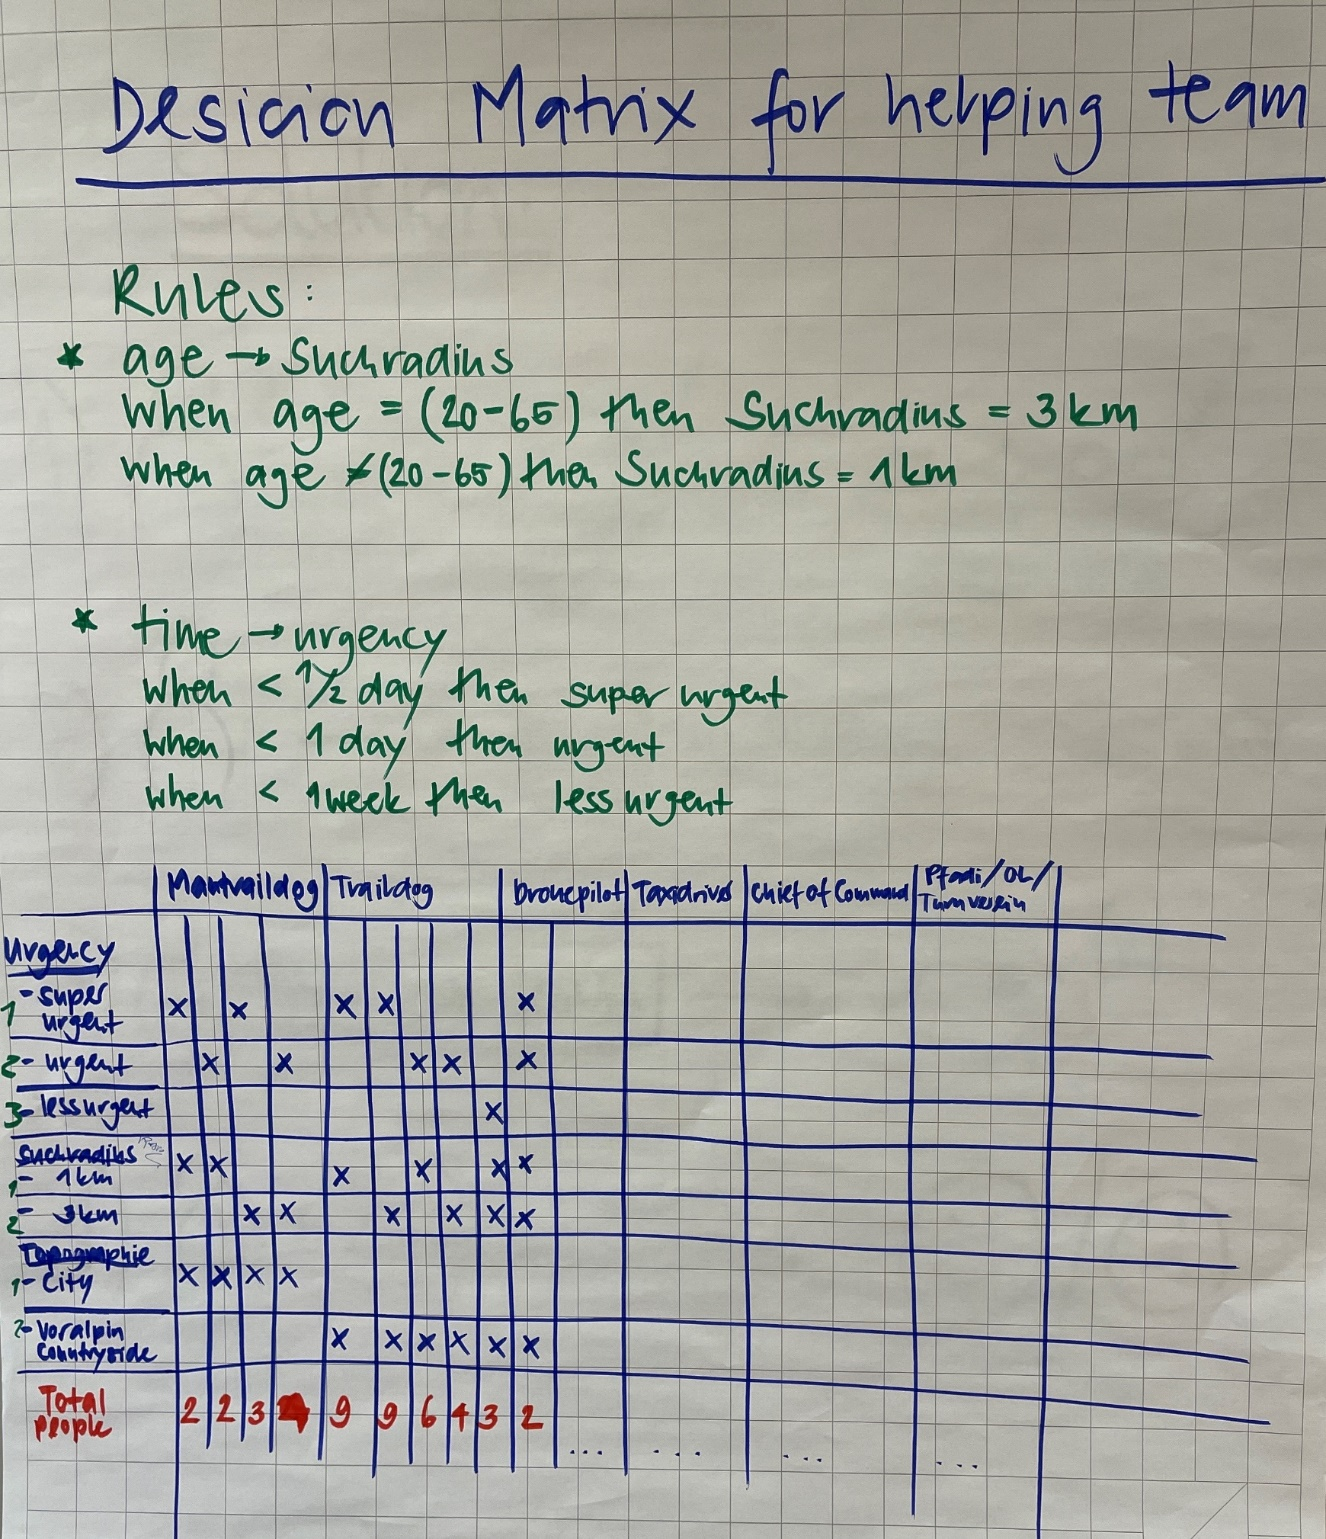 Desicion Matrix for helping team
Rules:
* age → Suchradius
when age = (20-65) then Suchradius = 3 km
when age ≠ (20-65) then Suchradius = 1 km
* time → urgency
when < 1/2 day then super urgent
when < 1 day then urgent
when < 1 week then less urgent
Mantraildog Traildog Dronepilot Taxidriver Chief of Command Pfadi/OL/
Turnverein
Urgency
1 - super x x x x x
urgent
2 - urgent x x x x x
3 - less urgent x
Suchradius
1 - 1 km x x x x x x
2 - 3 km x x x x x x
Topographie
1 - City x x x x
2 - Voralpin x x x x x x
Countryside
Total 2 2 3 9 9 6 4 3 2
people
... ... ... ...